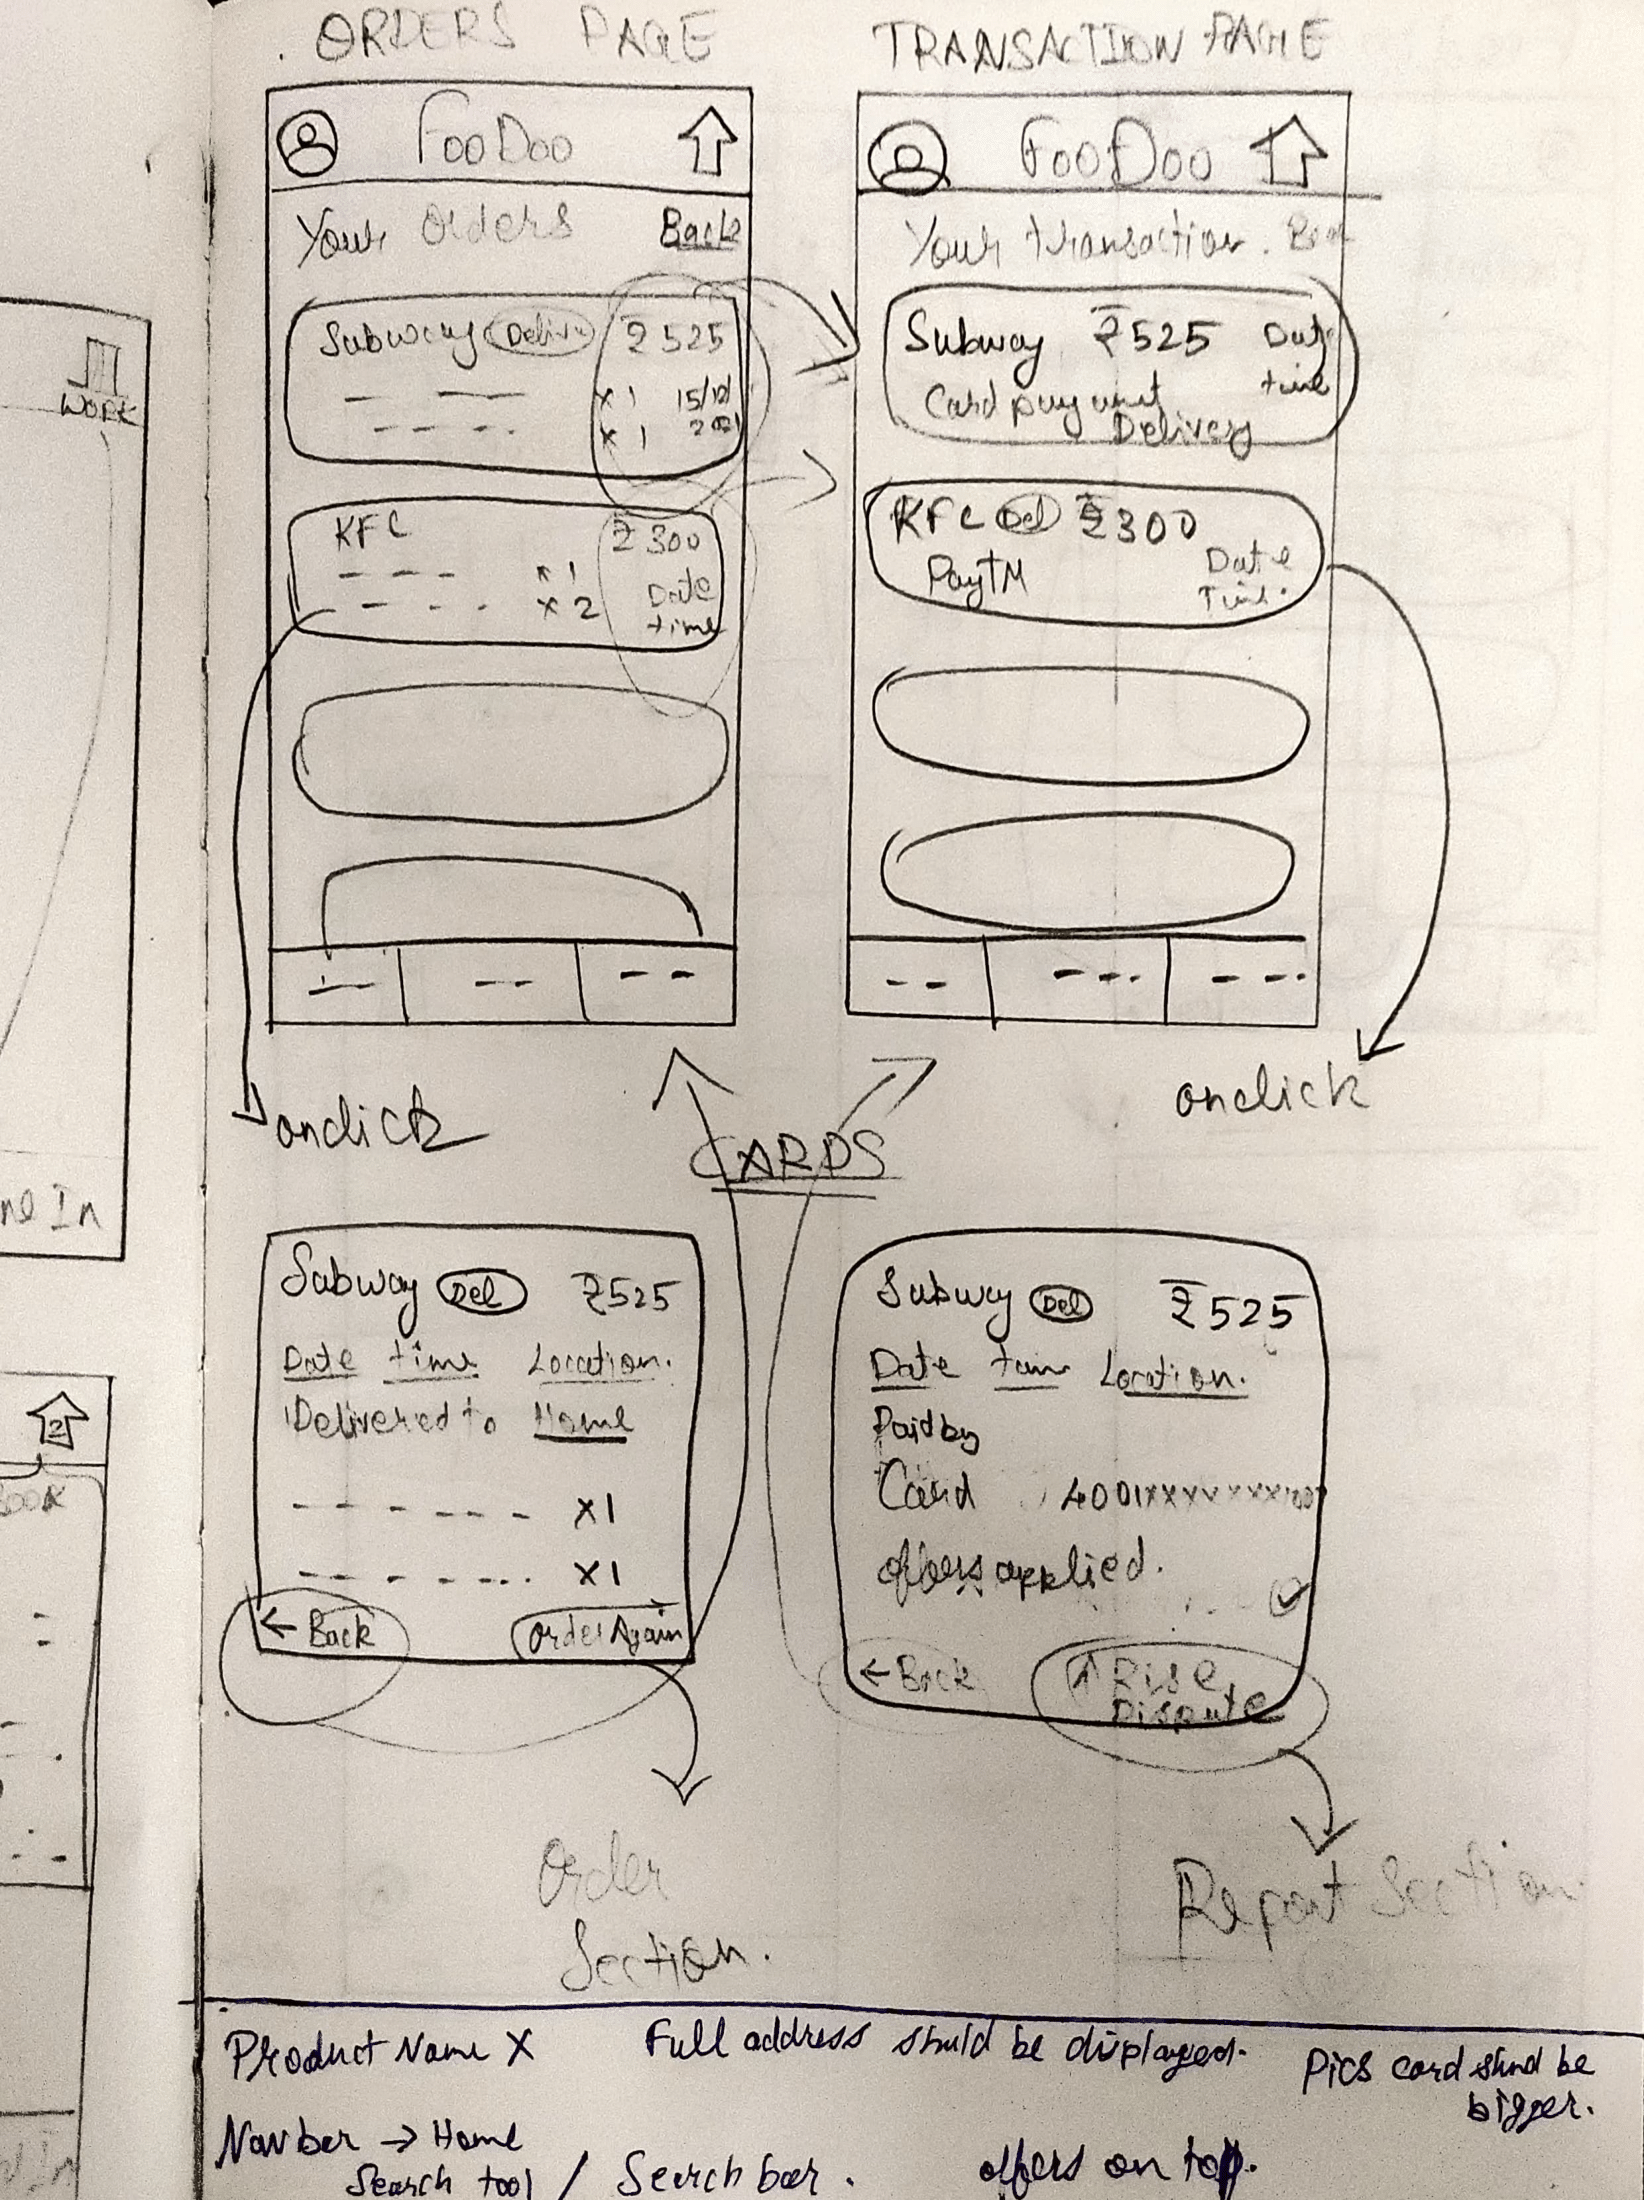 ORDERS PAGE
TRANSACTION PAGE
FooDoo
Your Orders Back
Subway ₹525
x 1 15/12/
x 1 2021
KFC ₹300
x 1 Date
x 2 time
FooDoo
Your transaction.
Subway ₹525 Date
time
Card payment
Delivery
KFC Del ₹300
PayTM Date
Time
onclick
onclick
CARDS
Subway Del ₹525
Date time Location.
Delivered to Home
x1
x1
← Back Order Again
Subway Del ₹525
Date time Location.
Paid by
Card
offers applied.
← Back ↑ Rise
Dispute
Order
Section.
Report Section
WORK
ne In
2
BOOK
Product Name X Full address should be displayed. Pics card
be
bigger.
Navbar → Home
Search tool / Search bar. offers on top.